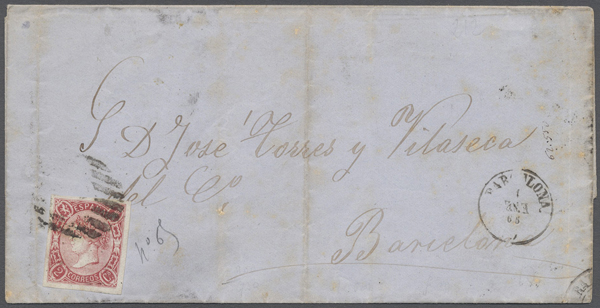 S. D. José Torres y Vilaseca
del Co
Barcelona
nº 65
ESPAÑA
CORREOS
BARCELONA
1
ENE
65